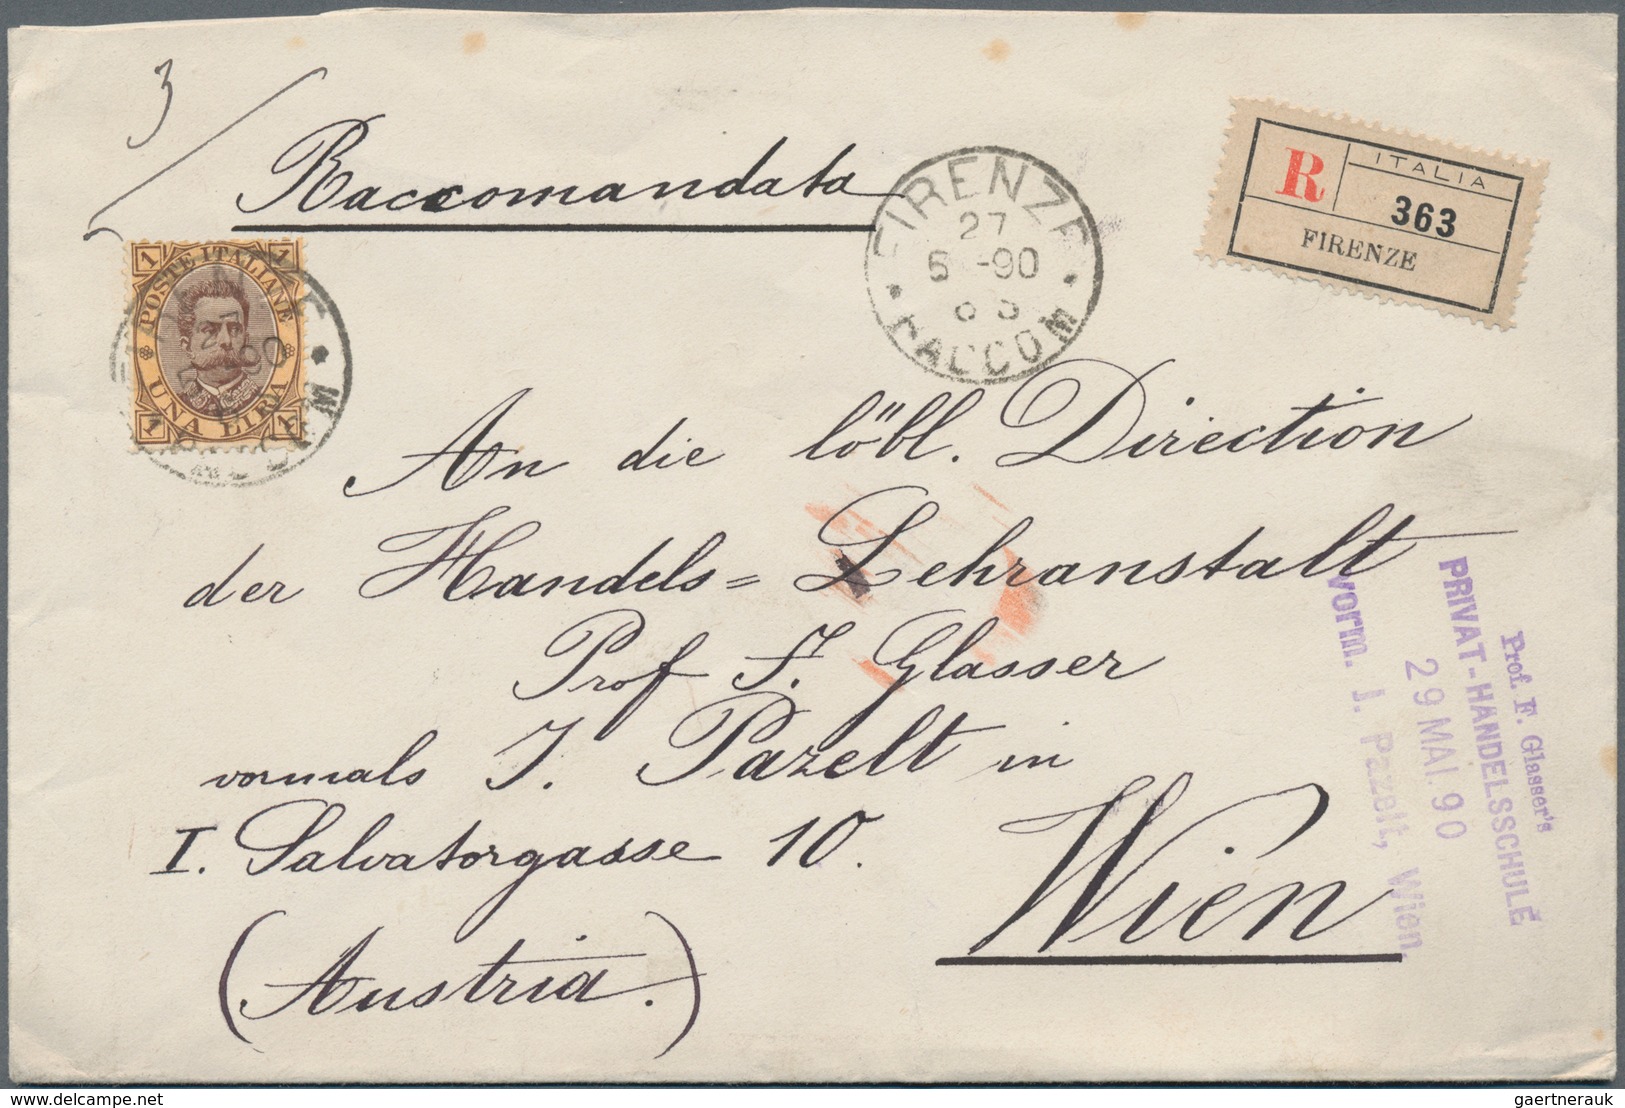 3
Raccomandata
FIRENZE
27
5 -90
RACCOM
R
ITALIA
363
FIRENZE
1 1
POSTE ITALIANE
UNA LIRA
1 1
An die löbl. Direction
der Handels= Lehranstalt
Prof F. Glasser
vormals J. Pazelt in
I. Salvatorgasse 10.
Wien
(Austria.)
Prof. F. Glasser's
PRIVAT-HANDELSSCHULE
29 MAI. 90
vorm. J. Pazelt, Wien.
delcampe.net
gaertnerauk